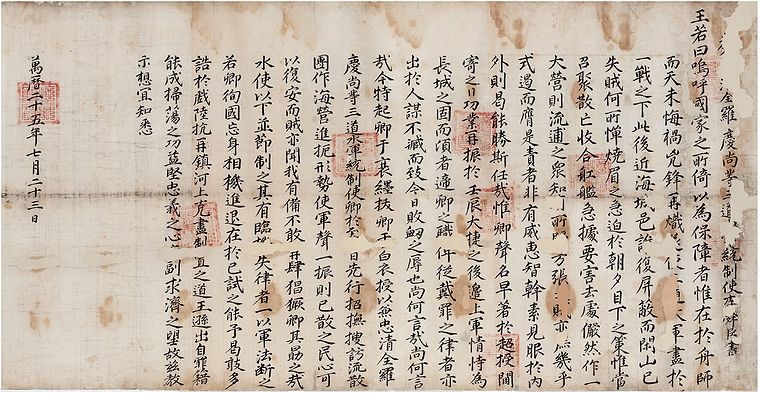 全羅慶尚等三道 統制使李舜臣書
王若曰嗚呼國家之所倚以爲保障者惟在於舟師
而天未悔禍兇鋒再熾 三道大軍盡於
一戰之下此後近海城邑誰復屏蔽而閑山已
失賊何所憚燒眉之急迫於朝夕目下之策惟當
召聚散亡收合舡艦急據要害去處儼然作一
大營則流逋之衆知 所 方張 則亦 幾乎
式遏而膺是責者非有威惠智幹素見服於內
外則曷能勝斯任哉惟卿聲名早著於超授閫
寄之日功業再振於壬辰大捷之後邊上軍情恃爲
長城之固而頃者遞卿之職俾從戴罪之律者亦
出於人謀不臧而致今日敗衄之辱也尚何言哉尚何言
哉今特起卿于衰絰拔卿于白衣授以兼忠清全羅
慶尚等三道水軍統制使卿於至日先行招撫搜訪流散
團作海營進扼形勢使軍聲一振則已散之民心可
以復安而賊亦聞我有備不敢再肆猖獗卿其勗之哉
水使以下並節制之其有臨機失律者一以軍法斷之
若卿徇國忘身相機進退在於已試之能予曷敢多
誥於戲陸抗再鎮河上克盡制置之道王遜出自罪籍
能成掃蕩之功益堅忠義之心 副求濟之望故茲教
示想宜知悉
萬曆二十五年七月二十三日